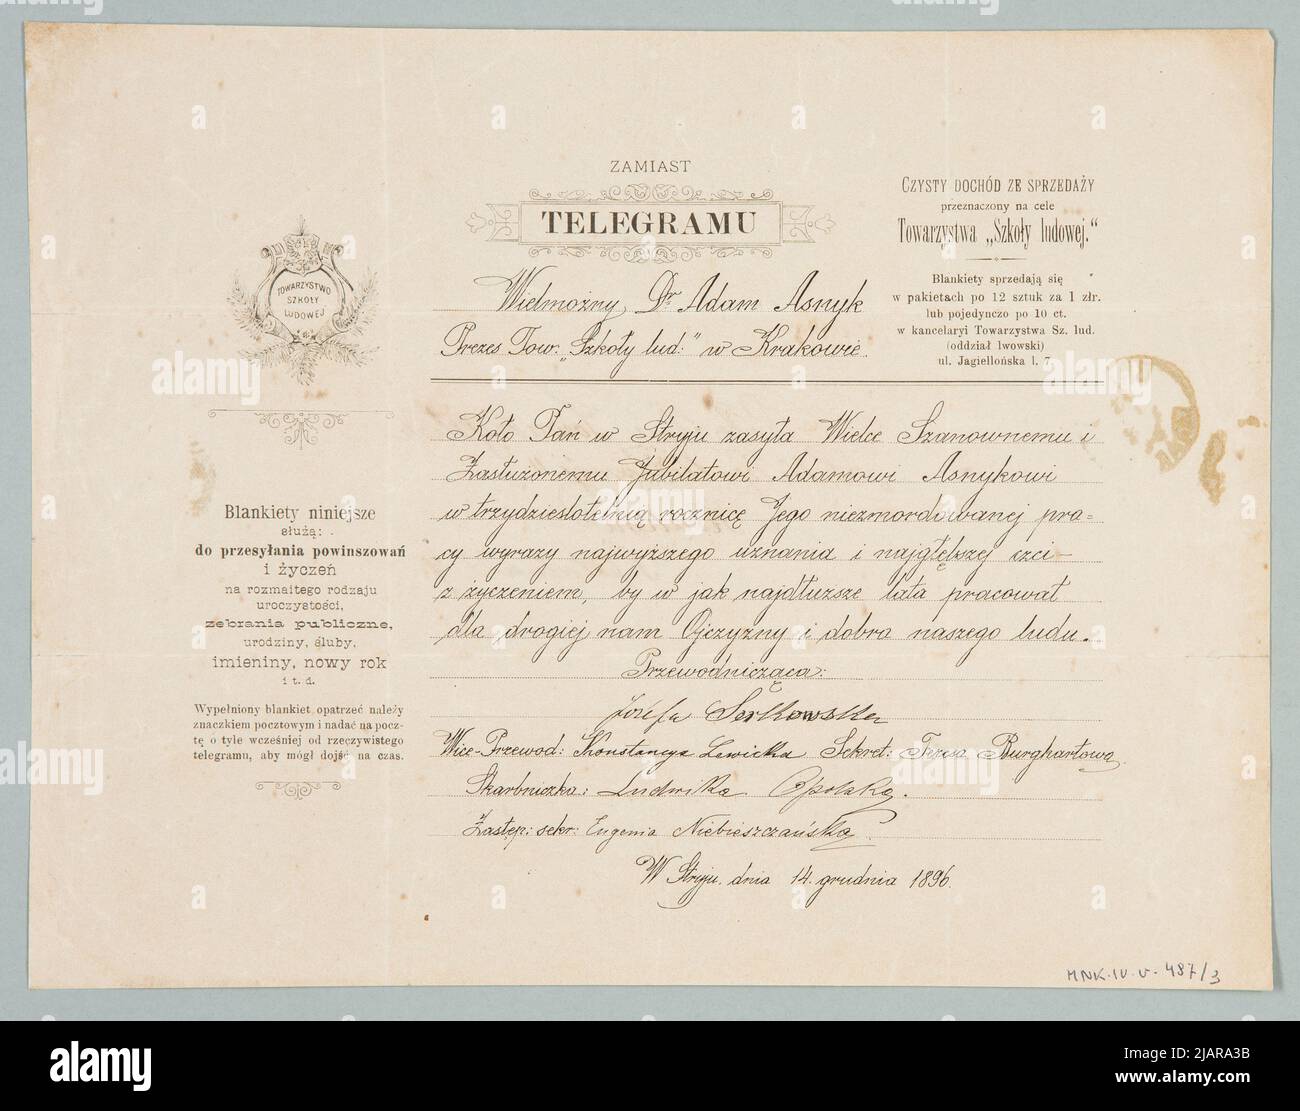 ZAMIAST
TELEGRAMU
Wielmożny Dr Adam Asnyk
Prezes Tow. „Szkoły lud:" w Krakowie.
CZYSTY DOCHÓD ZE SPRZEDAŻY
przeznaczony na cele
Towarzystwa „Szkoły ludowej."
Blankiety sprzedają się
w pakietach po 12 sztuk za 1 złr.
lub pojedynczo po 10 ct.
w kancelaryi Towarzystwa Sz. lud.
(oddział lwowski)
ul. Jagiellońska l. 7.
TOWARZYSTWO
SZKOŁY
LUDOWEJ
Blankiety niniejsze
służą:
do przesyłania powinszowań
i życzeń
na rozmaitego rodzaju
uroczystości,
zebrania publiczne,
urodziny, śluby,
imieniny, nowy rok
i t. d.
Wypełniony blankiet opatrzeć należy
znaczkiem pocztowym i nadać na pocz-
tę o tyle wcześniej od rzeczywistego
telegramu, aby mógł dojść na czas.
Koło Pań w Stryju zasyła Wielce Szanownemu i
Zasłużonemu Jubilatowi Adamowi Asnykowi
w trzydziestoletnią rocznicę Jego niezmordowanej pra=
cy wyrazy najwyższego uznania i najgłębszej czci –
z życzeniem, by w jak najdłuższe lata pracował
dla drogiej nam Ojczyzny i dobra naszego ludu.
Przewodnicząca:
Józefa Serkowska
Wice-Przewod: Konstancya Lewicka Sekret: Teresa Burghartowa
Skarbniczka: Ludwika Opolska.
Zastęp: sekr: Eugenia Niebieszczańska.
W Stryju, dnia 14. grudnia 1896.
MNK-IV-V-487/3
alamy
Image ID: 2JARA3B
www.alamy.com